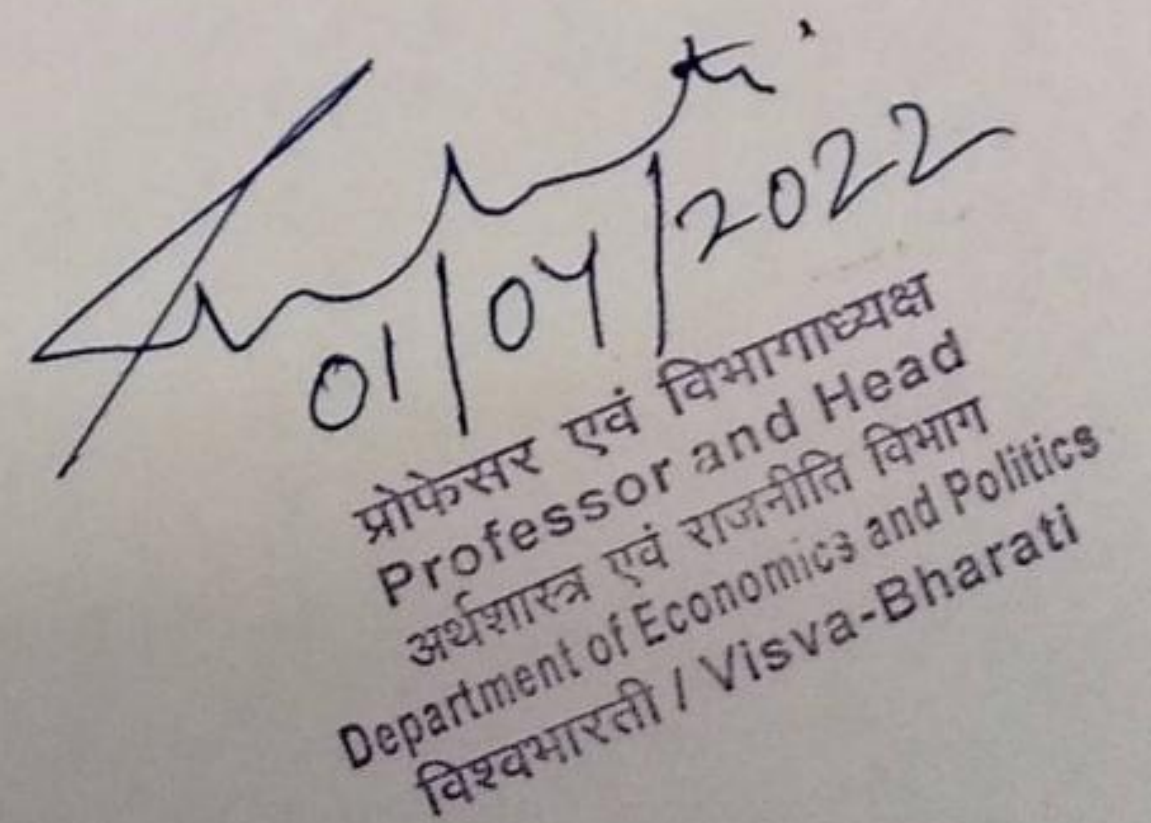 01/04/2022
प्रोफेसर एवं विभागाध्यक्ष
Professor and Head
अर्थशास्त्र एवं राजनीति विभाग
Department of Economics and Politics
विश्वभारती / Visva-Bharati